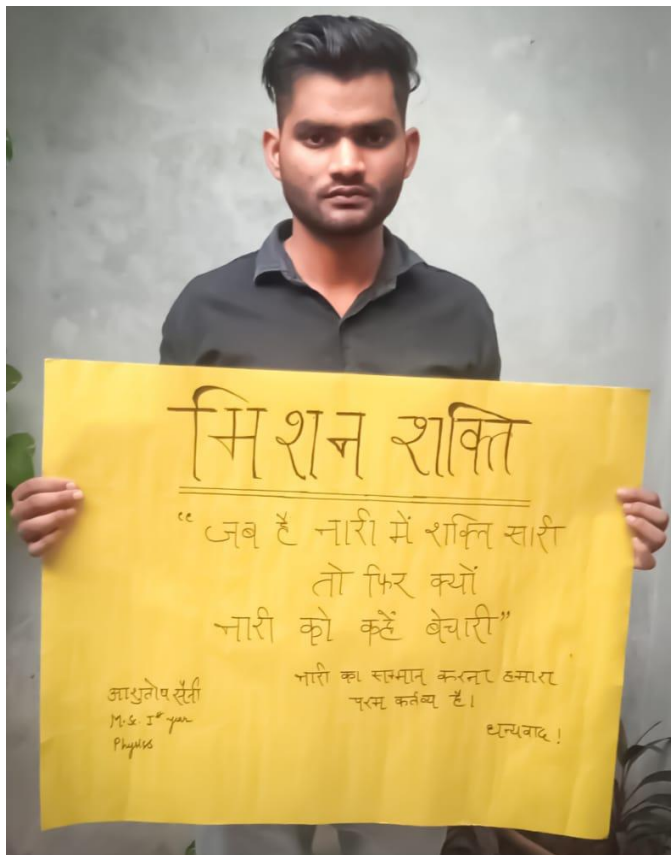 मिशन शक्ति
“जब है नारी में शक्ति सारी
तो फिर क्यों
नारी को कहें बेचारी”
नारी का सम्मान करना हमारा
परम कर्तव्य है।
धन्यवाद !
आशुतोष सैनी
M.Sc. Ist year
Physics